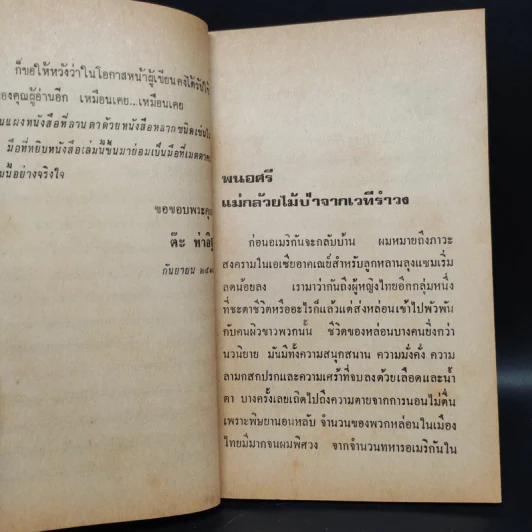 ก็ขอให้หวังว่าในโอกาสหน้าผู้เขียนคงได้รับใช้
ของคุณผู้อ่านอีก เหมือนเคย...เหมือนเคย
แผงหนังสือที่ลานตาด้วยหนังสือหลากชนิดเช่น
มือที่หยิบหนังสือเล่มนี้ขึ้นมาย่อมเป็นมือที่เมตตา
อย่างจริงใจ
ขอขอบพระคุณ
ต๊ะ ท่าอิฐ
กันยายน
พนอศรี
แม่กล้วยไม้ป่าจากเวทีรำวง
ก่อนอเมริกันจะกลับบ้าน ผมหมายถึงภาวะ
สงครามในเอเซียอาคเณย์สำหรับลูกหลานลุงแซมเริ่ม
ลดน้อยลง เรามาว่ากันถึงผู้หญิงไทยอีกกลุ่มหนึ่ง
ที่ชะตาชีวิตหรืออะไรก็แล้วแต่ส่งหล่อนเข้าไปพัวพัน
กับคนผิวขาวพวกนั้น ชีวิตของหล่อนบางคนยิ่งกว่า
นวนิยาย มันมีทั้งความสนุกสนาน ความมั่งคั่ง ความ
ลามกสกปรกและความเศร้าที่จบลงด้วยเลือดและน้ำ
ตา บางครั้งเลยเถิดไปถึงความตายจากการนอนไม่ตื่น
เพราะพิษยานอนหลับ จำนวนของพวกหล่อนในเมือง
ไทยมีมากจนผมพิศวง จากจำนวนทหารอเมริกันใน